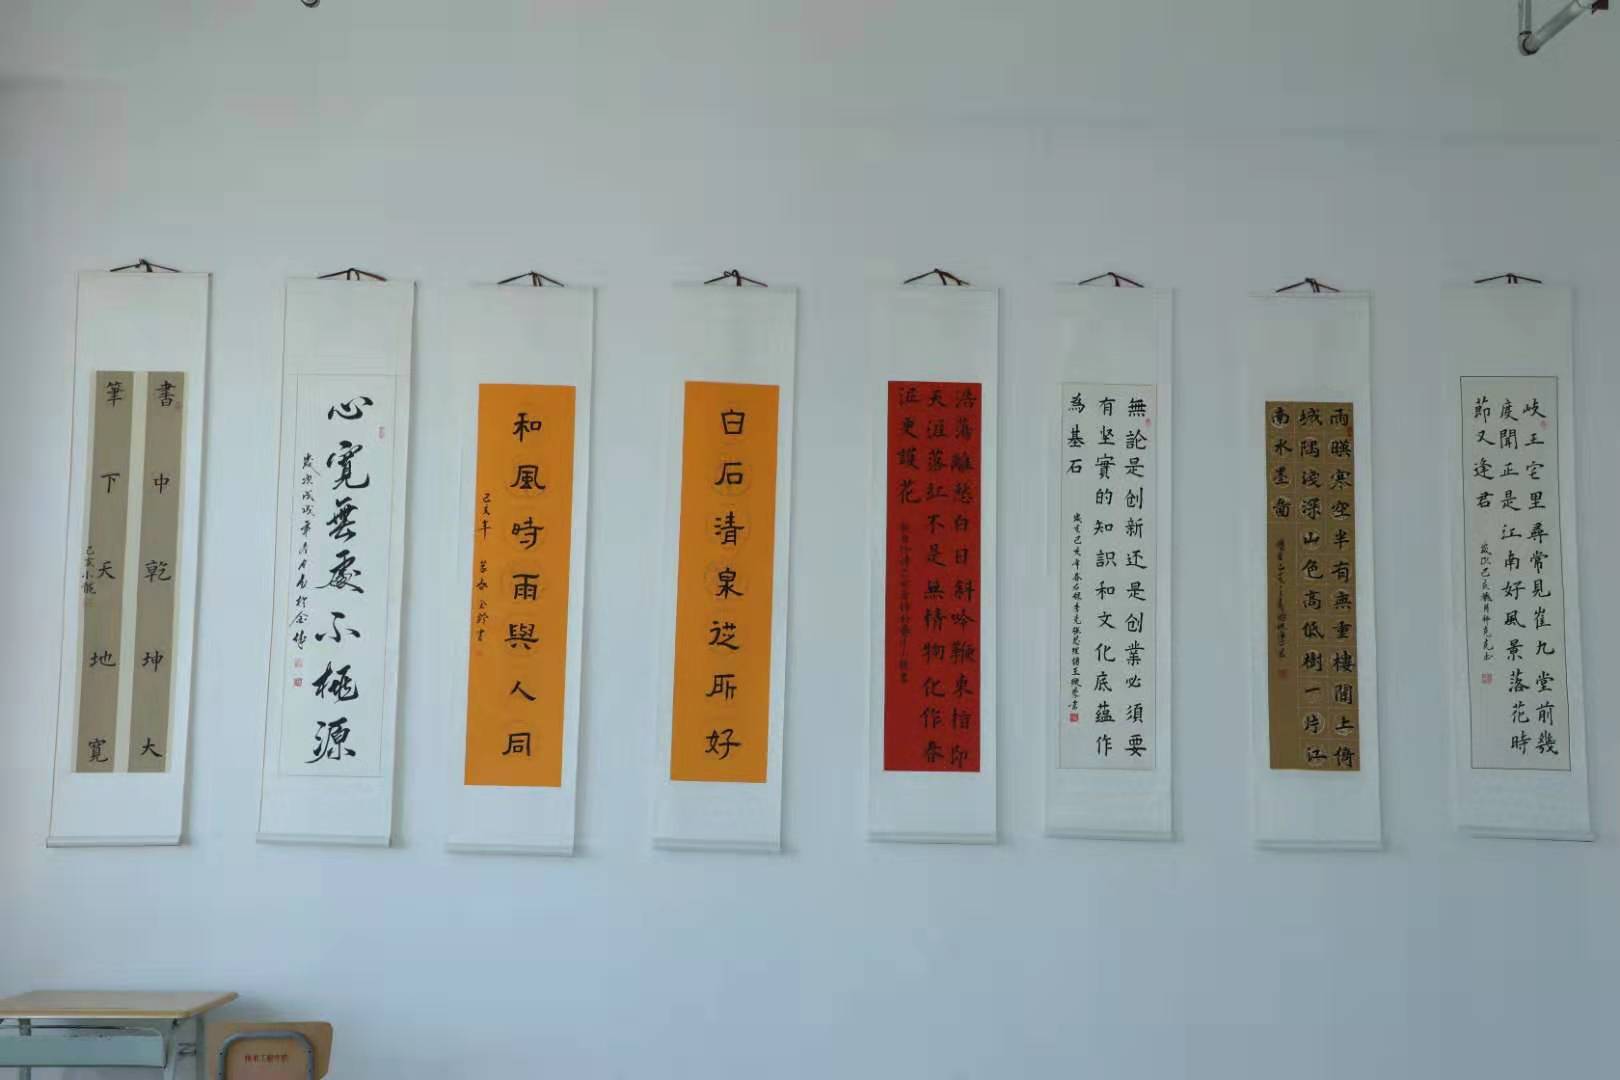 書中乾坤大
筆下天地寬
己亥小龍
心寬無處不桃源
歲次戊戌年
和風時雨與人同
己亥年
白石清泉從所好
浩蕩離愁白日斜吟鞭東指即
天涯落紅不是無情物化作春
泥更護花
無論是创新还是创業必須要
有坚實的知識和文化底蕴作
為基石
雨暝寒空半有無重樓閒上倚
城隅浅深山色高低樹一片江
南水墨圖
岐王宅里尋常見崔九堂前幾
度聞正是江南好風景落花時
節又逢君